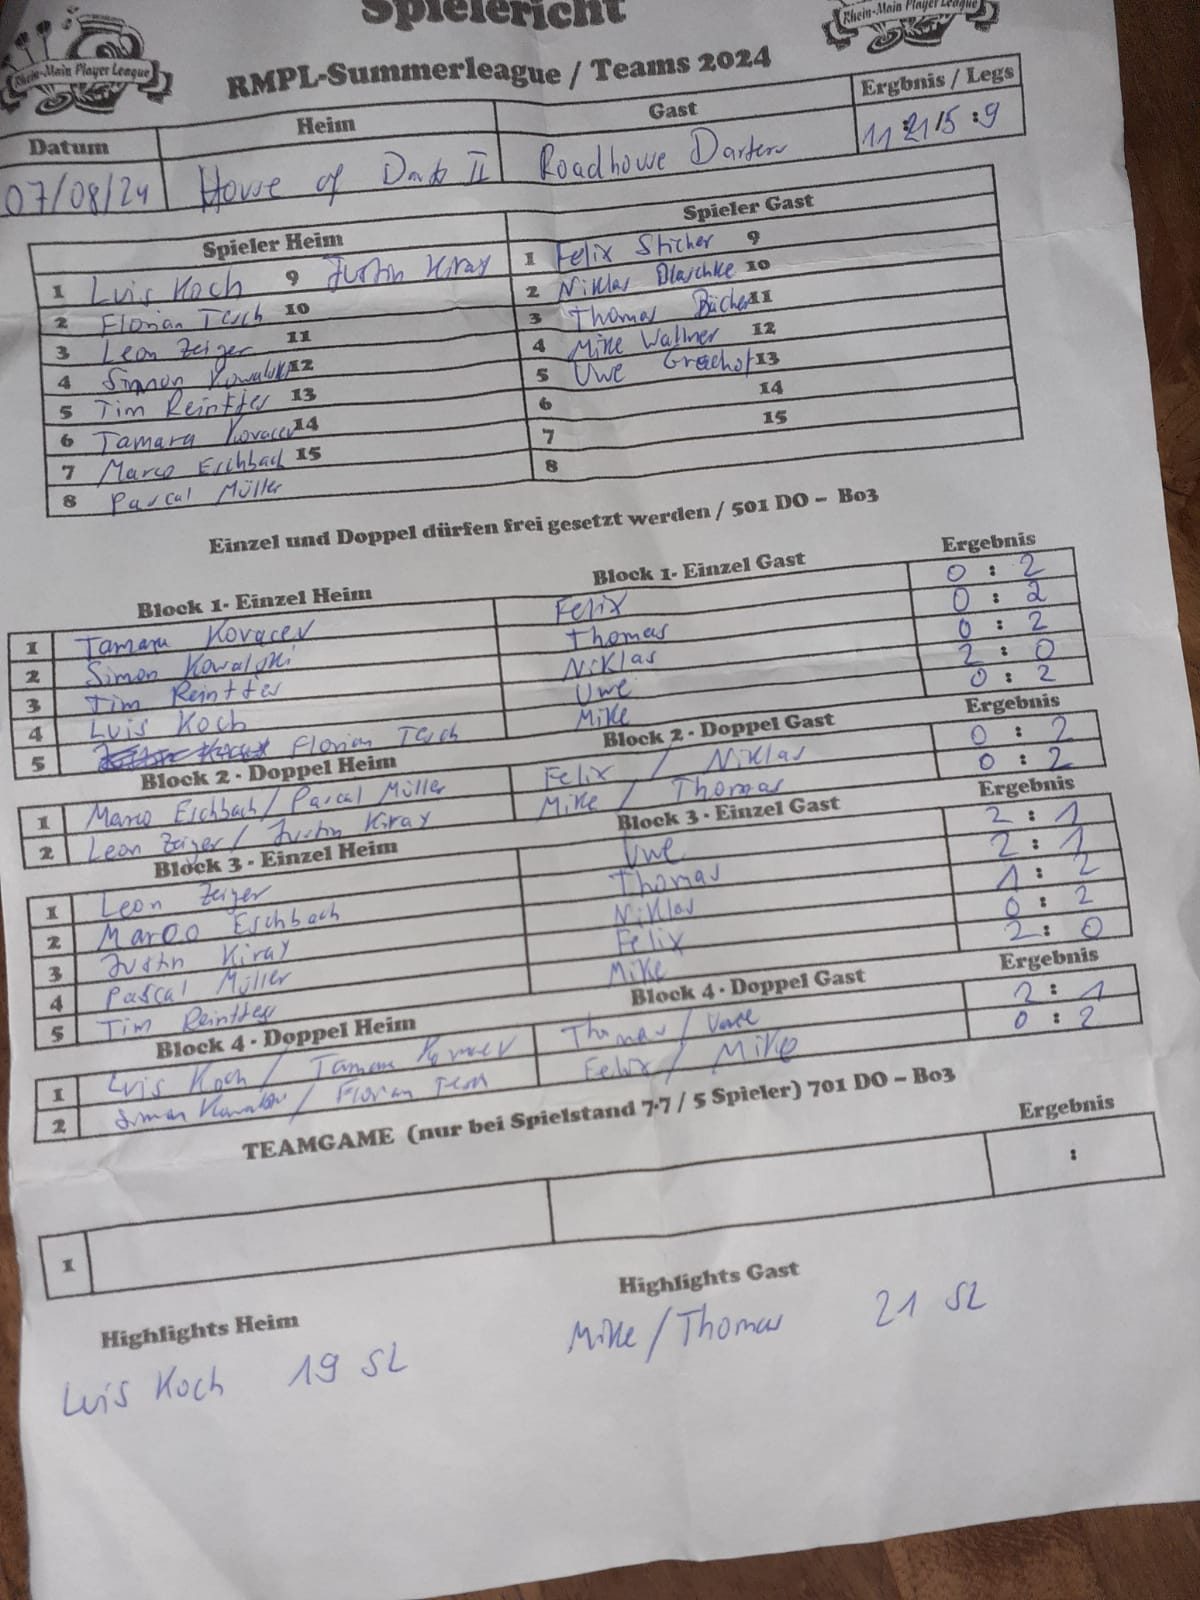 Spielericht
Rhein-Main Player League
Rhein-Main Player League
RMPL-Summerleague / Teams 2024
Datum Heim Gast Ergbnis / Legs
07/08/24 House of Darts II Roadhouse Darters 11:21/5:9
Spieler Heim Spieler Gast
1 Luis Koch 9 Justin Kiray 1 Felix Sticher 9
2 Florian Tesch 10 2 Niklas Blaschke 10
3 Leon Zeiger 11 3 Thomas Bücher 11
4 Simon Kowalski 12 4 Mike Wallner 12
5 Tim Reintges 13 5 Uwe 13
6 Tamara Kovacev 14 6 14
7 Marco Eschbach 15 7 15
8 Pascal Müller 8
Einzel und Doppel dürfen frei gesetzt werden / 501 DO – Bo3
Block 1- Einzel Heim Block 1- Einzel Gast Ergebnis
1 Tamara Kovacev Felix 0 : 2
2 Simon Kowalski Thomas 0 : 2
3 Tim Reintges Niklas 0 : 2
4 Luis Koch Uwe 2 : 0
5 Florian Tesch Mike 0 : 2
Block 2 - Doppel Heim Block 2 - Doppel Gast Ergebnis
1 Marco Eschbach / Pascal Müller Felix / Niklas 0 : 2
2 Leon Zeiger / Justin Kiray Mike / Thomas 0 : 2
Block 3 - Einzel Heim Block 3 - Einzel Gast Ergebnis
1 Leon Zeiger Uwe 2 : 1
2 Marco Eschbach Thomas 2 : 1
3 Justin Kiray Niklas 1 : 2
4 Pascal Müller Felix 0 : 2
5 Tim Reintges Mike 2 : 0
Block 4 - Doppel Heim Block 4 - Doppel Gast Ergebnis
1 Luis Koch / Tamara Kovacev Thomas / Uwe 2 : 1
2 Simon Kowalski / Florian Tesch Felix / Mike 0 : 2
TEAMGAME (nur bei Spielstand 7-7 / 5 Spieler) 701 DO – Bo3
Ergebnis
1 :
Highlights Heim Highlights Gast
Luis Koch 19 SL Mike/Thomas 21 SL